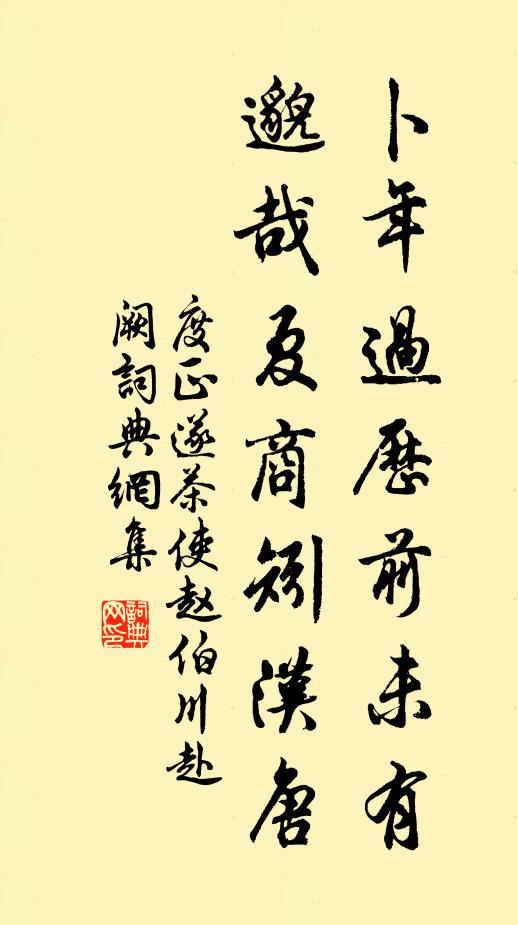 卜年過歷前未有
邈哉夏商矧漢唐
度正送茶使赵伯川赴
阙詞典網集
詞典网印